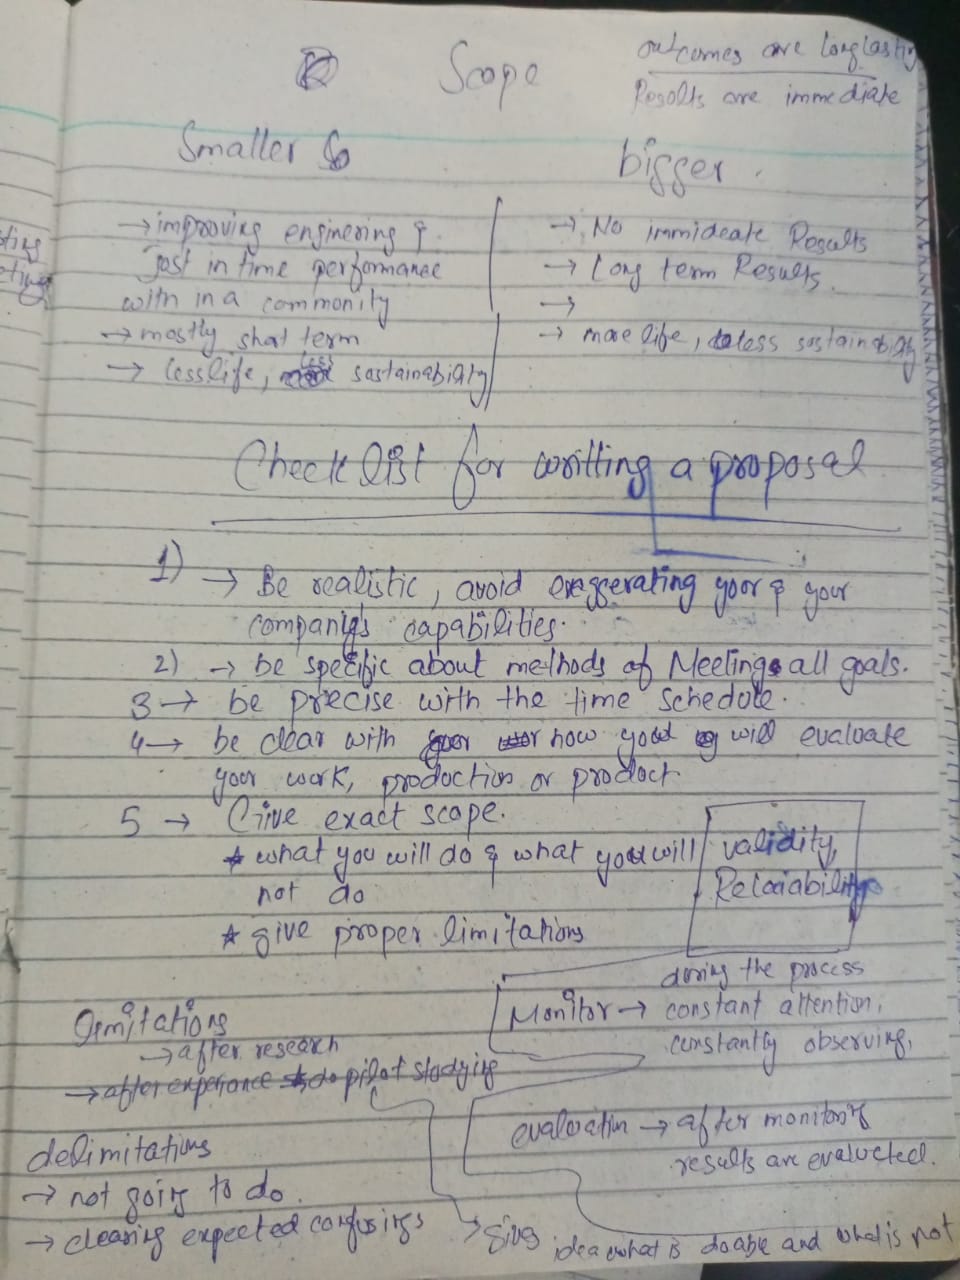 Scope
outcomes are longlasting
Results are immediate
Smaller
bigger.
→ improving enginering &
just in time performance
with in a commonity
→ mostly short term
→ less life, less sustainability
→ No immideate Results
→ Long term Results.
→
→ more life, less sustainability
Check list for writting a proposal
1) → Be realistic, avoid exaggerating your & your
companies capabilities.
2) → be specific about methods of Meeting all goals.
3 → be precise with the time schedule.
4 → be clear with how you will evaluate
your work, production or product.
5 → Give exact scope.
* what you will do & what you will
not do
* give proper limitations
validity,
during the process
Monitor → constant attention,
constantly observing,
limitations
→ after research
→ after experiance pilot studying
evaluation → after monitoring
results are evaluated.
delimitations
→ not going to do.
→ clearing expected confusings
→ giving idea what is doable and what is not